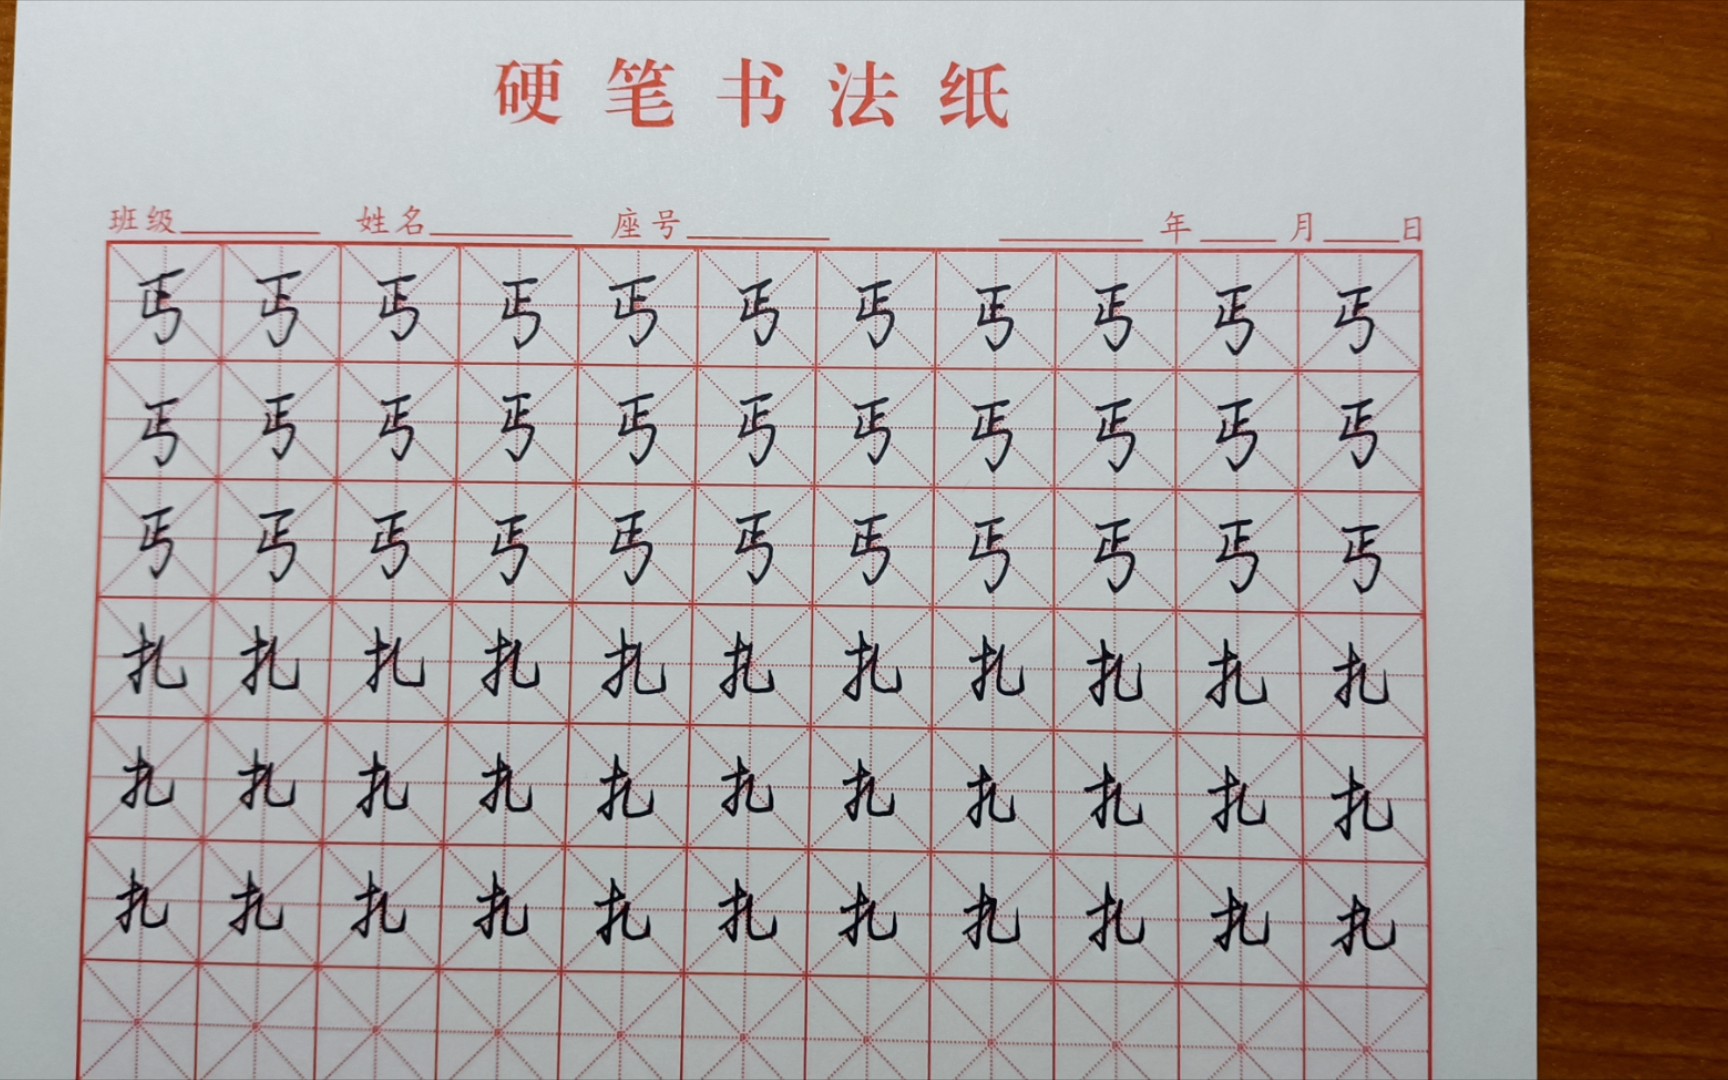 硬笔书法纸
班级 姓名 座号 年 月 日
丐 丐 丐 丐 丐 丐 丐 丐 丐 丐 丐
丐 丐 丐 丐 丐 丐 丐 丐 丐 丐 丐
丐 丐 丐 丐 丐 丐 丐 丐 丐 丐 丐
扎 扎 扎 扎 扎 扎 扎 扎 扎 扎 扎
扎 扎 扎 扎 扎 扎 扎 扎 扎 扎 扎
扎 扎 扎 扎 扎 扎 扎 扎 扎 扎 扎